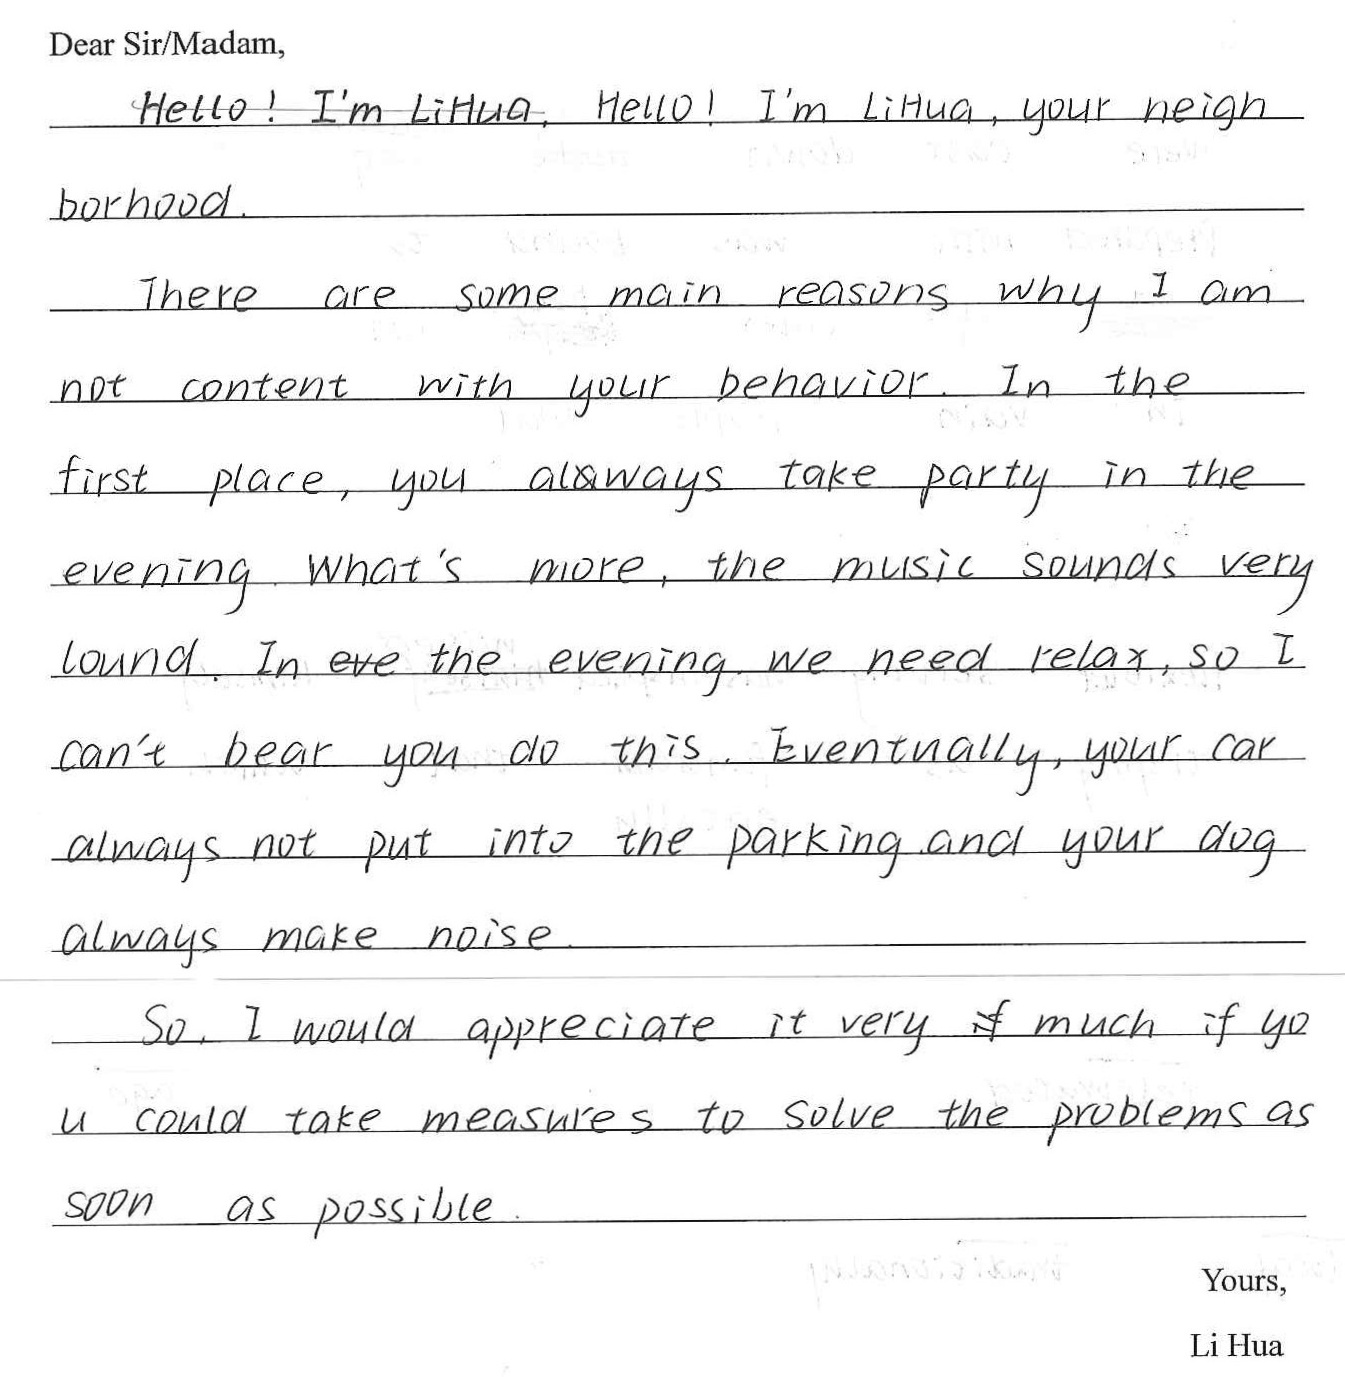 Dear Sir/Madam,
Hello! I'm LiHua, Hello! I'm LiHua, your neigh
borhood.
There are some main reasons why I am
not content with your behavior. In the
first place, you always take party in the
evening. What's more, the music sounds very
lound. In eve the evening we need relax, so I
can't bear you do this. Eventually, your car
always not put into the parking and your dog
always make noise.
So, I would appreciate it very if much if yo
u could take measures to solve the problems as
soon as possible.
Yours,
Li Hua